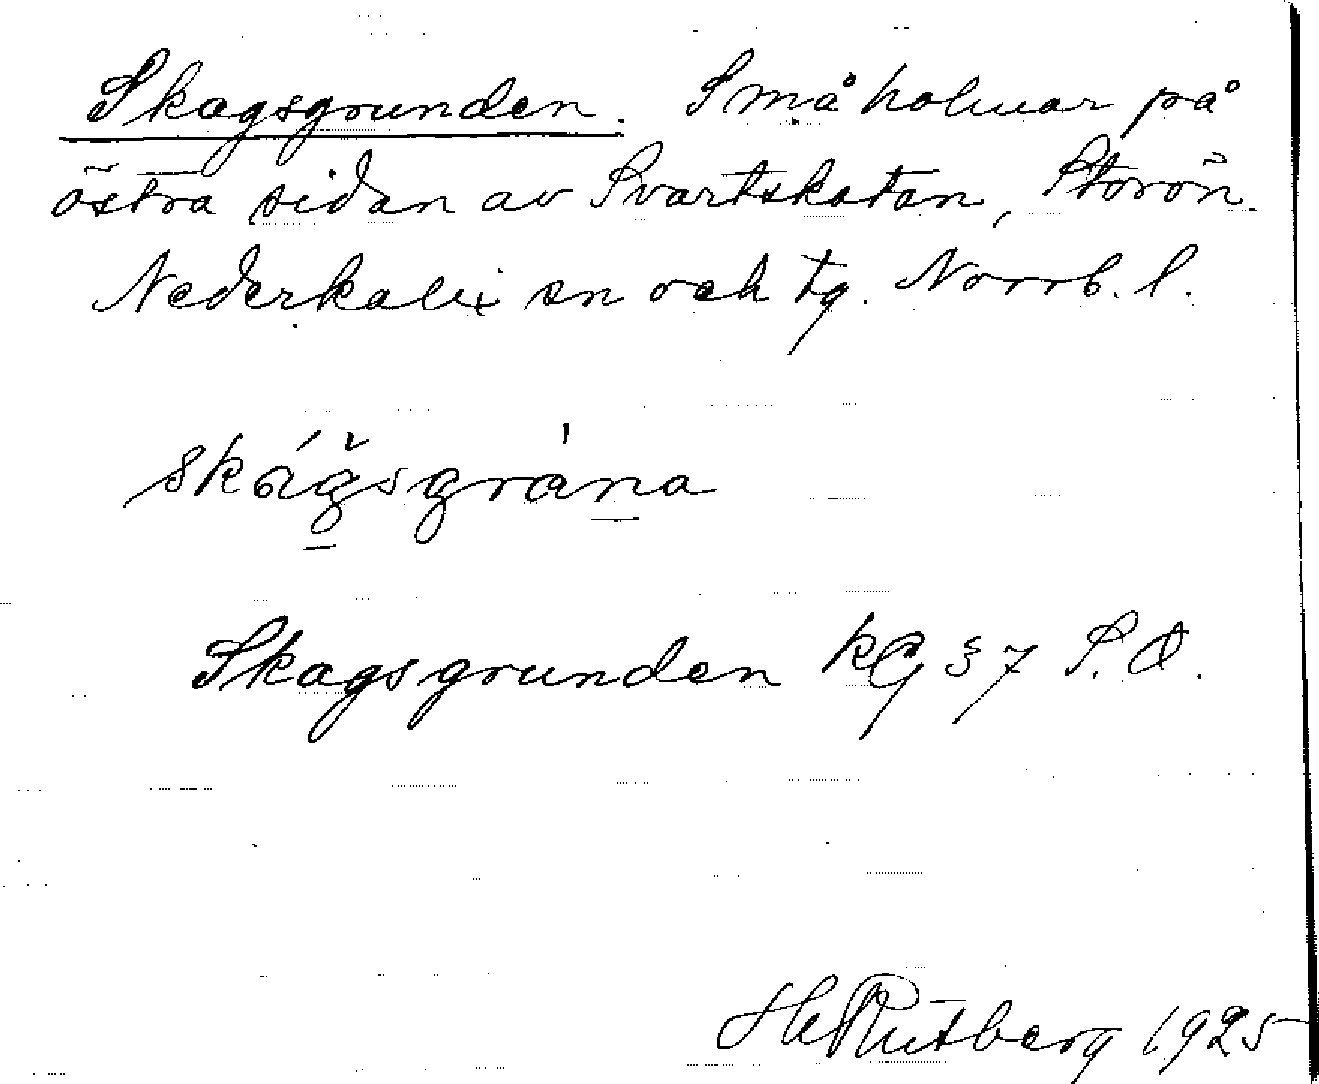 Skagsgrunden. Små holmar på
östra sidan av Svartskatan, Storön.
Nederkalix sn och tg. Norrb. l.
skágsgrána
Skagsgrunden kG 37 S.O.
H Rutberg 1925